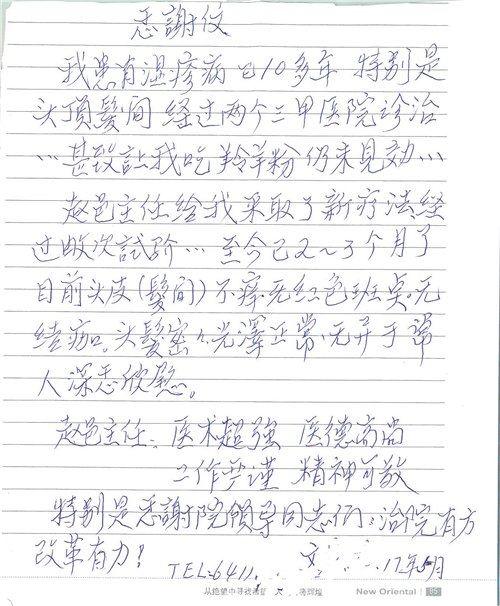 悉謝仪
我患有湿疹病已10多年 特别是
头頂髮间 经过两个三甲医院诊治
…甚致註我吃羚羊粉仍未見効…
赵邑主任给我采取了新疗法经
过数次試验…至今已2~3个月了
目前头皮(髮间)不痒无红色班点无
结痂。头髮密、光澤正常、无异于常
人深悉欣慰。
赵邑主任: 医术超强 医德高尚
工作严谨 精神可敬
特别是悉謝院領导同志们:治院有方
改革有力!
TEL:6411. 17年 月
从绝望中寻找希望 New Oriental 85